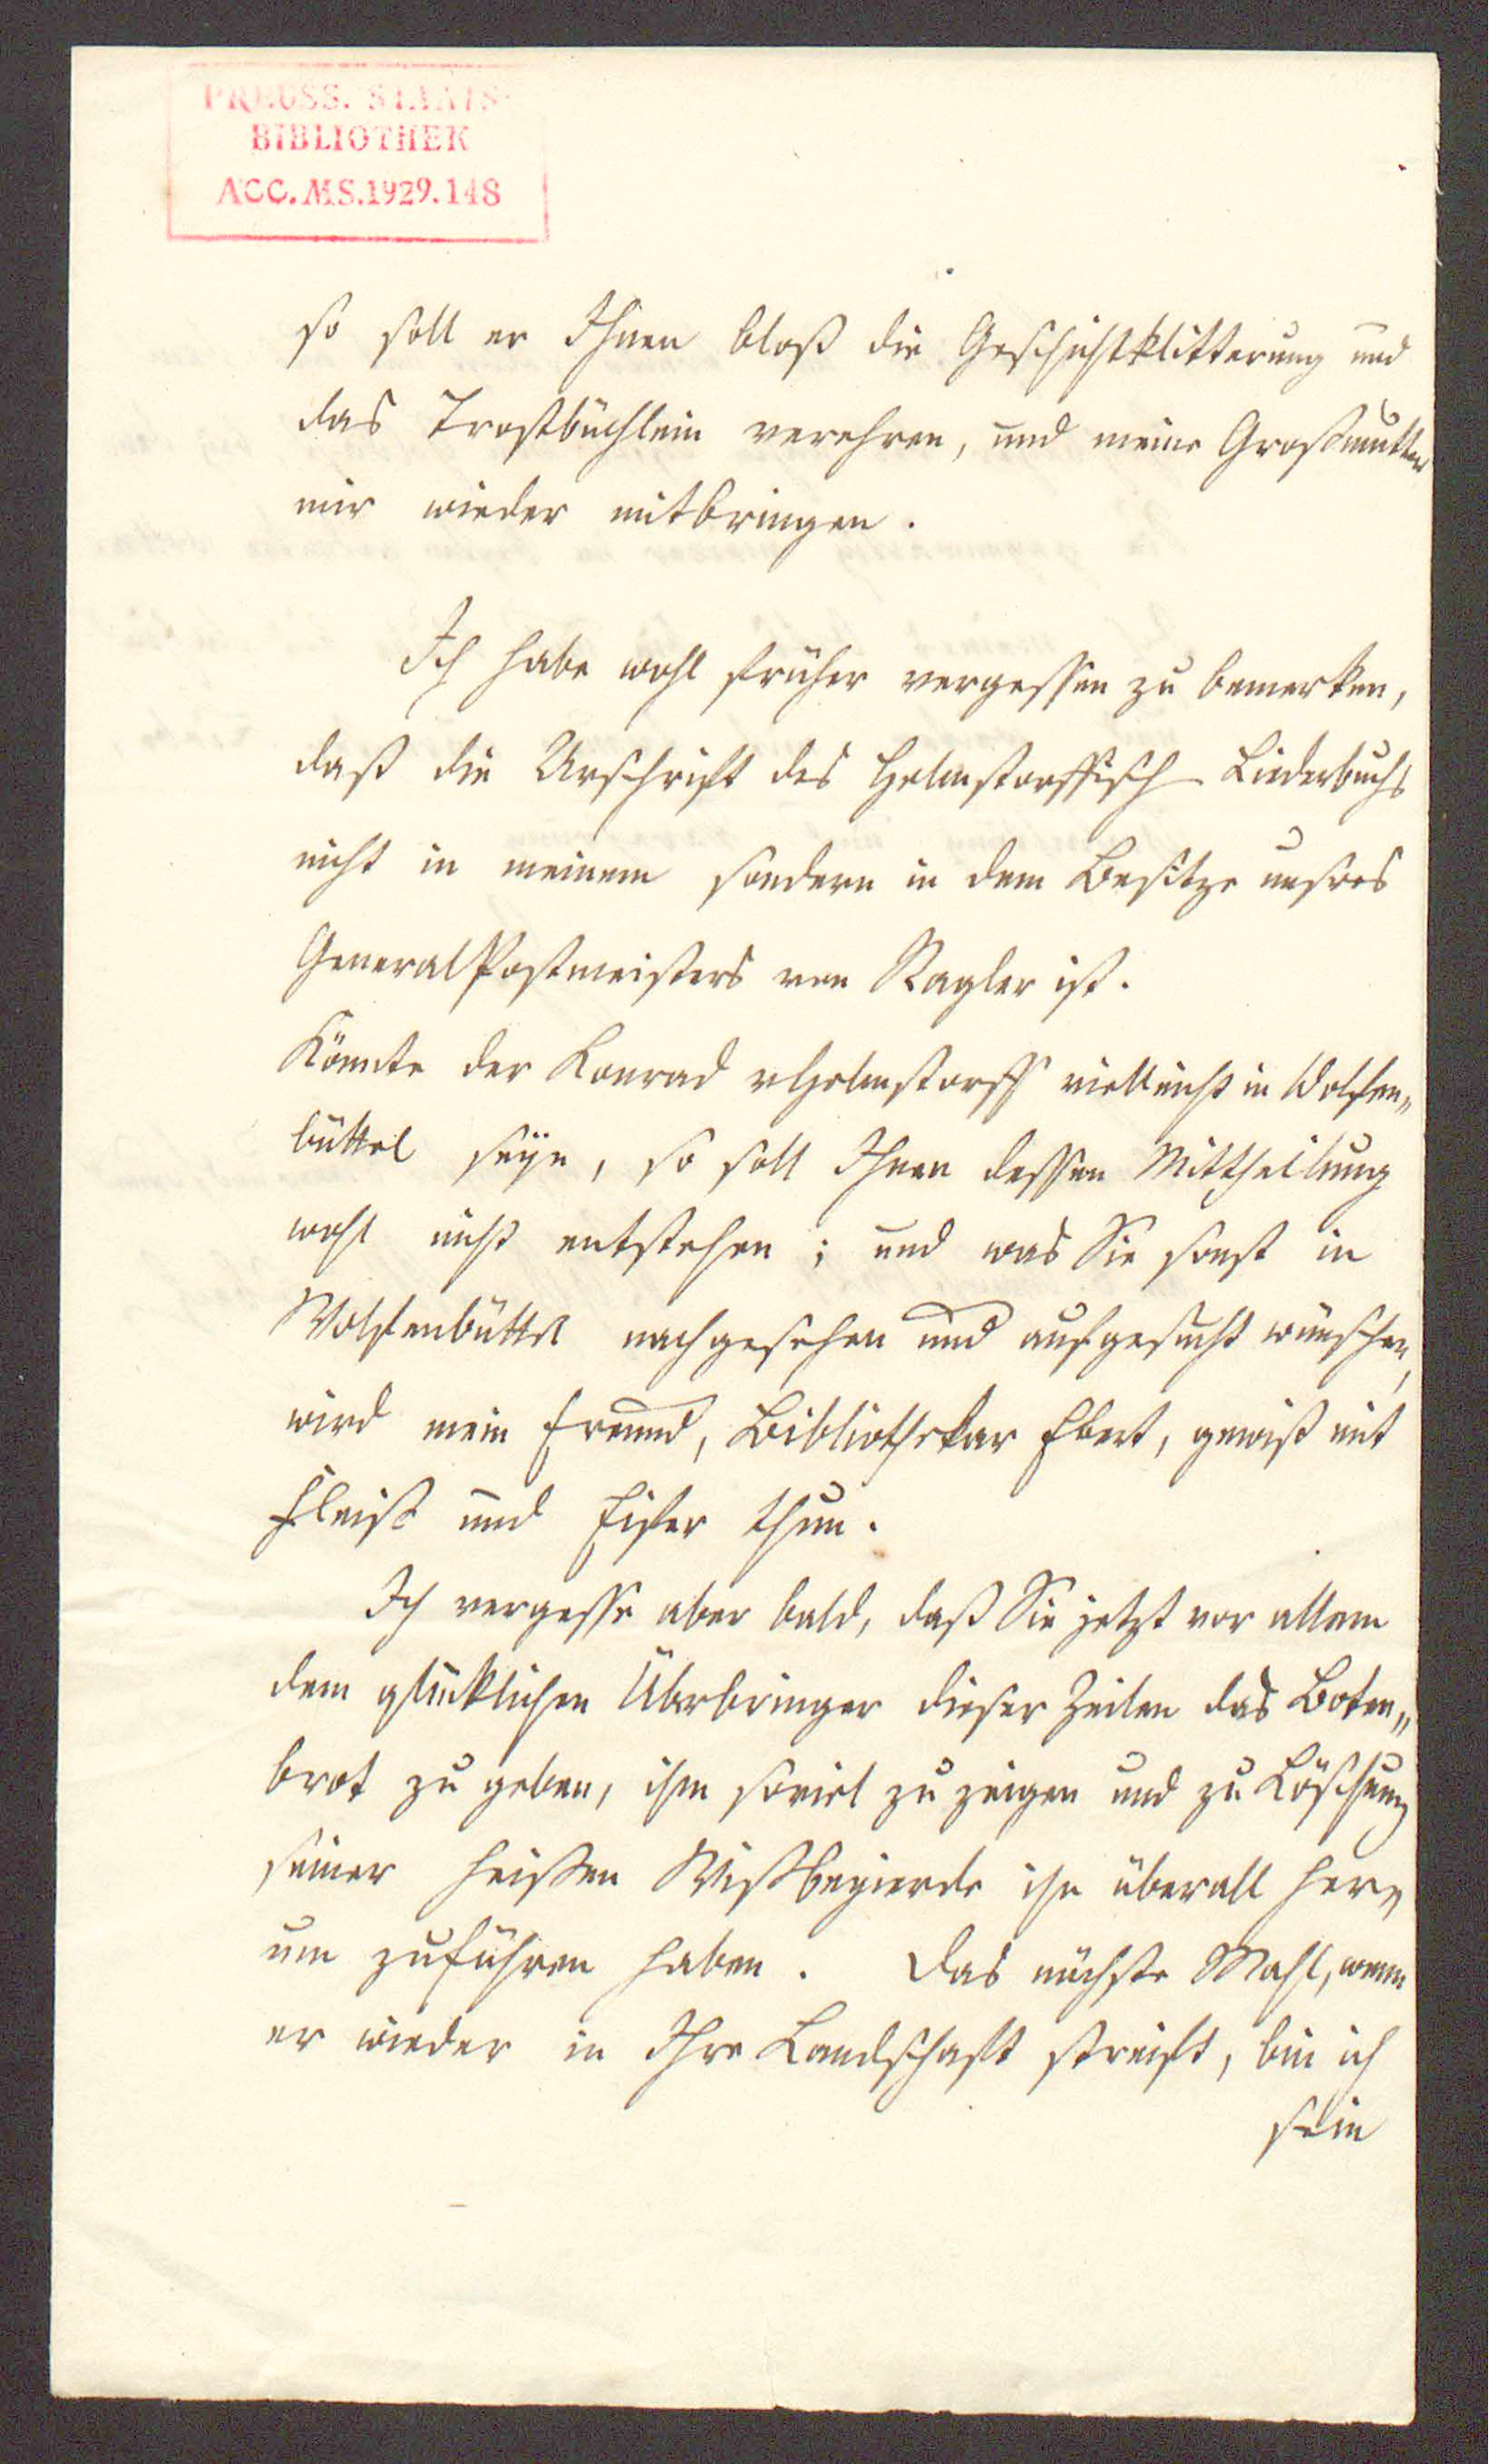 PREUSS. STAATS-
BIBLIOTHEK
ACC. MS. 1929. 148
so soll er Ihnen bloß die Geschichtklitterung und
das Trostbüchlein verehren, und meine Großmutter
mir wieder mitbringen.
Ich habe wohl früher vergessen zu bemerken,
daß die Urschrift des Helmstorffisch Liederbuchs
nicht in meinem sondern in dem Besitze unsres
GeneralPostmeisters von Nagler ist.
Könnte der Konrad v Helmstorff vielleicht in Wolfen„
büttel seÿn, so soll Ihnen dessen Mittheilung
wohl nicht entstehen; und was Sie sonst in
Wolfenbüttel nachgesehen und aufgesucht wünschen,
wird mein Freund, Bibliothekar Ebert, gewiß mit
Fleiß und Eifer thun.
Ich vergesse aber bald, daß Sie jetzt vor allem
dem glücklichen Überbringer dieser Zeilen das Boten„
brot zu geben, ihm soviel zu zeigen und zu Löschung
seiner heißen Wißbegierde ihn überall her„
um zuführen haben. Das nächste Mahl, wenn
er wieder in Ihre Landschaft streift, bin ich
sein